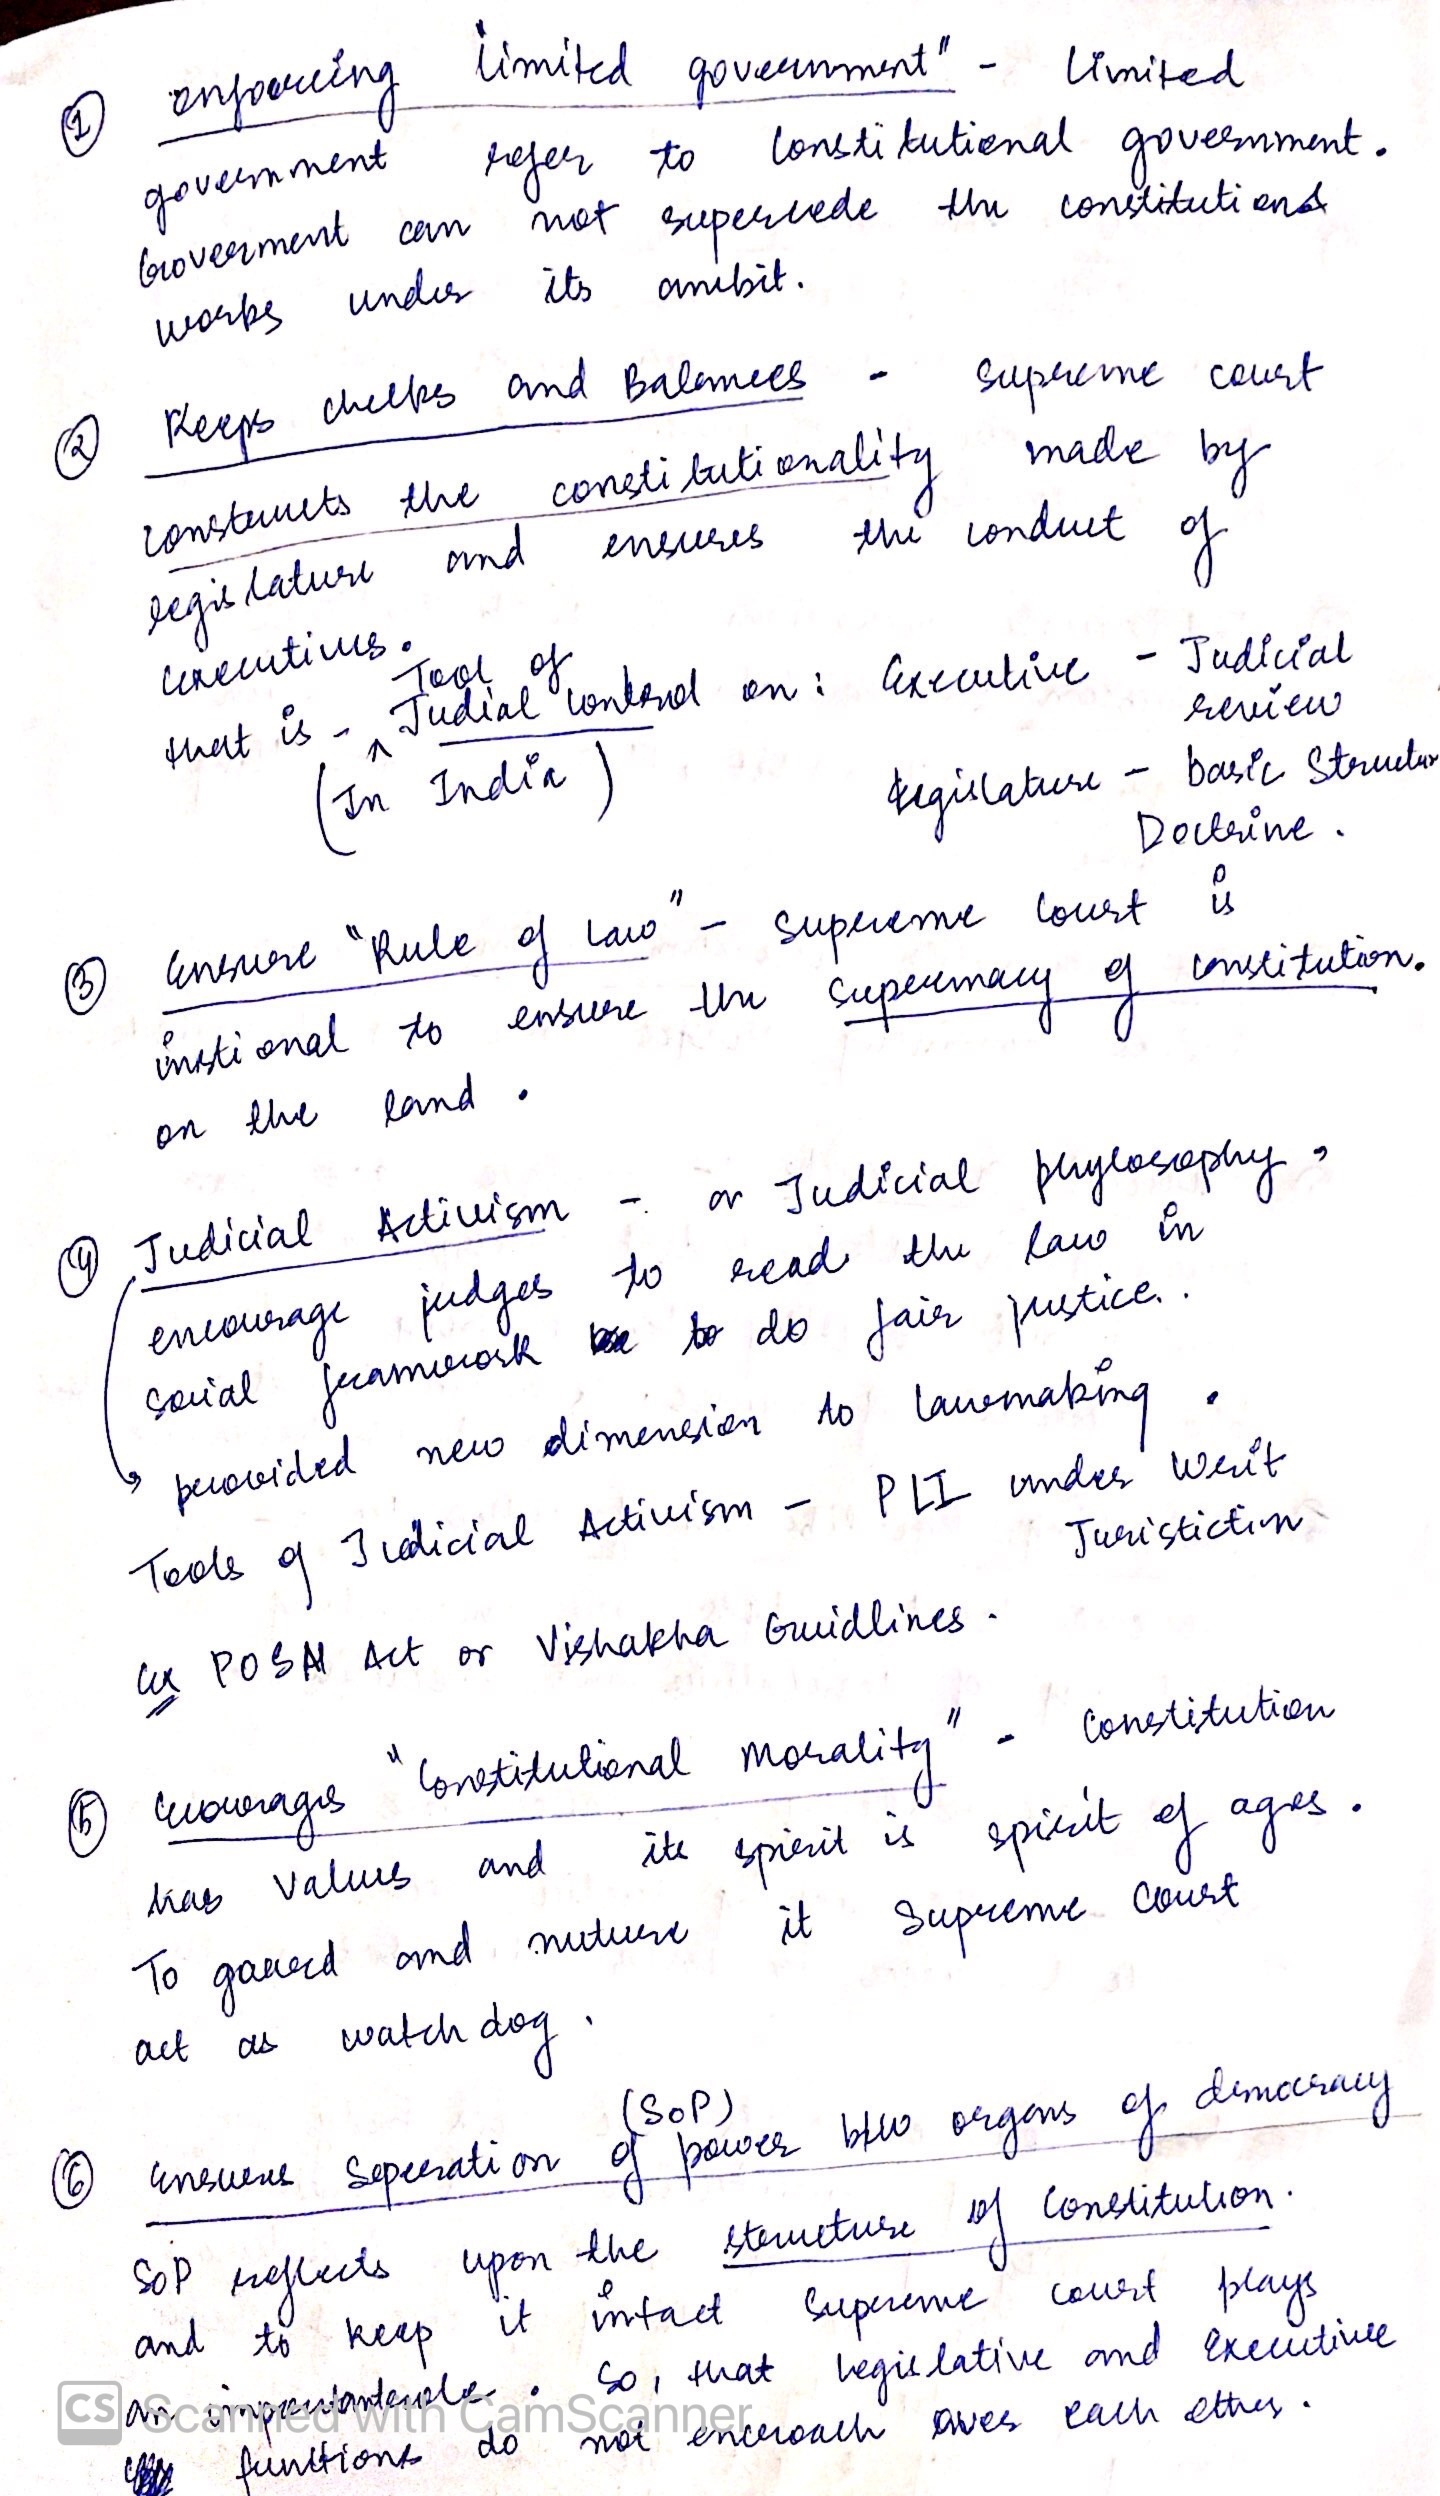 ① enforcing "limited government" - limited
government refer to constitutional government.
Goverment can not supercede the constitution &
works under its ambit.
② Keeps checks and Balances - Supreme court
constructs the constitutionality made by
legislature and ensures the conduct of
executives.
Tool of
that is - ^ Judial control on : Executive - Judicial
review
(In India) Legislature - basic Structur
Doctrine.
③ Ensure "Rule of Law" - Supreme Court is
instional to ensure the supermacy of constitution.
on the land.
④ Judicial Activism - or Judicial phylosophy,
encourage judges to read the law in
social framework to do fair justice.
provided new dimension to lawmaking.
Tools of Judicial Activism - PLI under Writ
Juristiction
Ex POSH Act or Vishakha Guidlines.
⑤ Encourages "Constitutional Morality" - Constitution
has values and its spirit is spirit of ages.
To gaurd and nuture it Supreme Court
act as watch dog.
(SoP)
⑥ Ensures Seperation of power b/w organs of democracy
SoP reflects upon the structure of Constitution.
and to keep it intact Supreme court plays
an important role. So, that legislative and Executive
functions do not encroach over each other.
CS Scanned with CamScanner